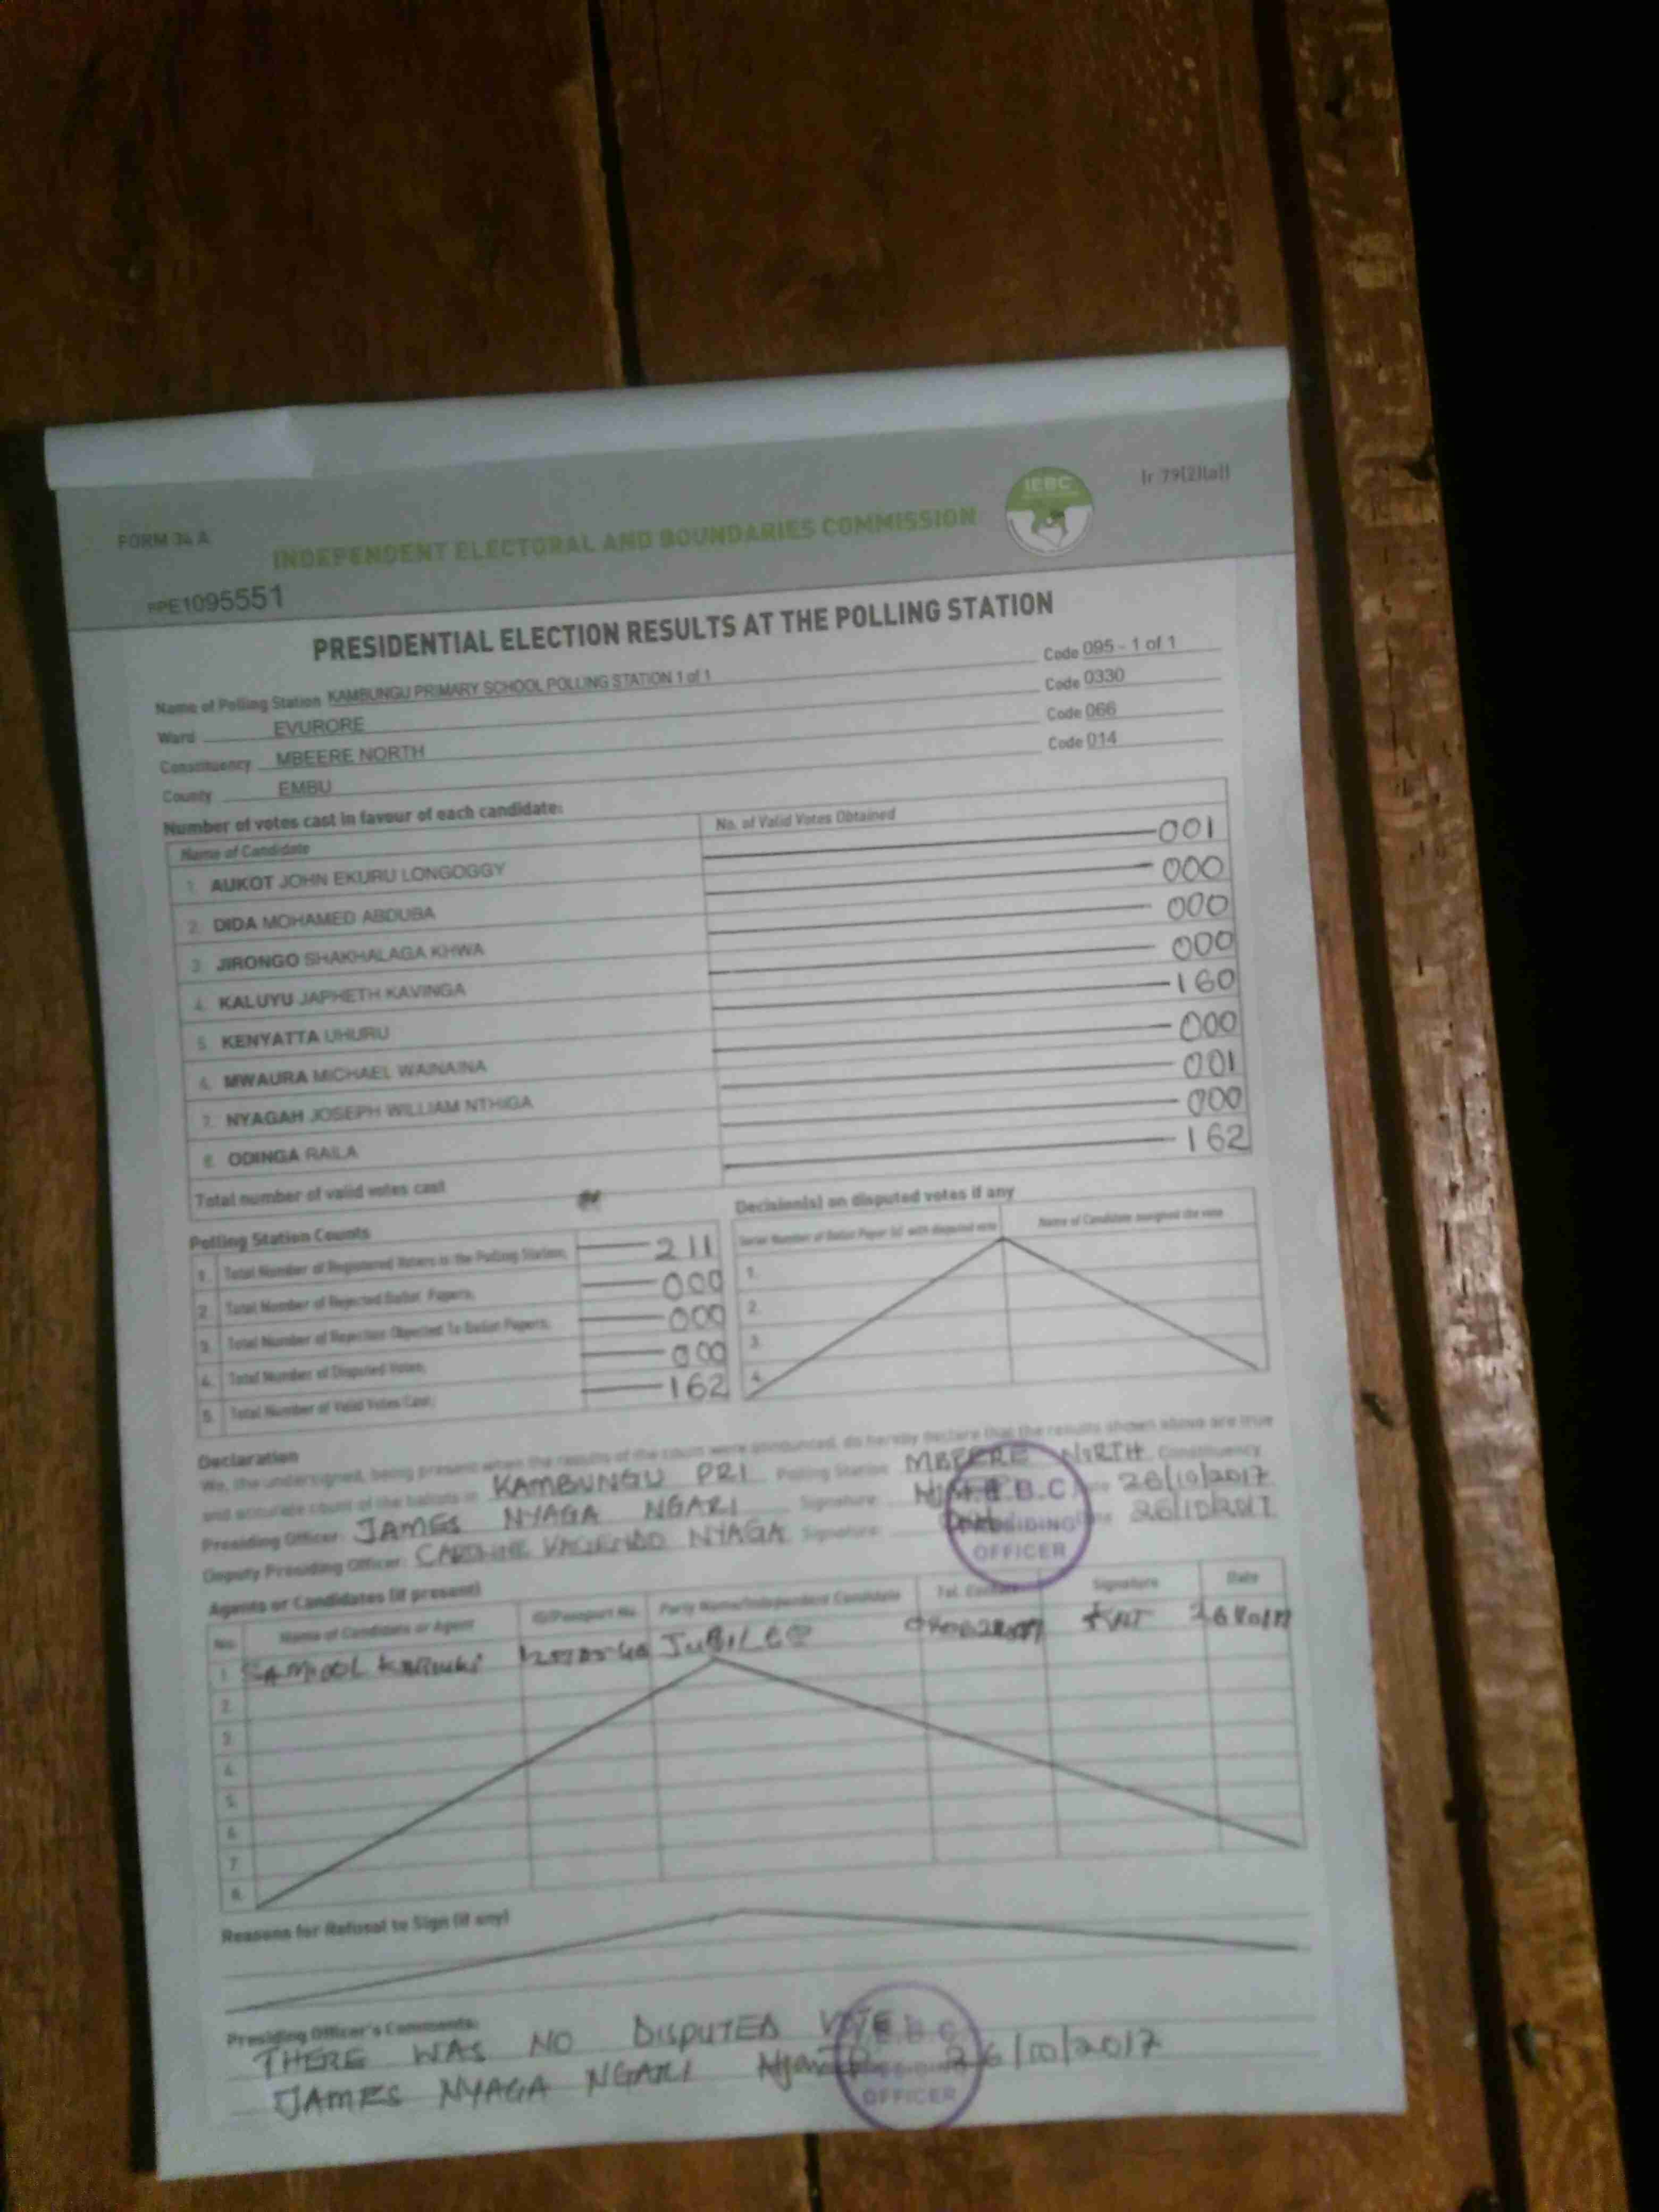 FORM 34 A
(r 79(2)(a))
IEBC
INDEPENDENT ELECTORAL AND BOUNDARIES COMMISSION
PPE1095551
PRESIDENTIAL ELECTION RESULTS AT THE POLLING STATION
Name of Polling Station KAMBUNGU PRIMARY SCHOOL POLLING STATION 1 of 1 Code 095 - 1 of 1
Ward EVURORE Code 0330
Constituency MBEERE NORTH Code 066
County EMBU Code 014
Number of votes cast in favour of each candidate:
Name of Candidate No. of Valid Votes Obtained
1. AUKOT JOHN EKURU LONGOGGY 001
2. DIDA MOHAMED ABDUBA 000
3. JIRONGO SHAKHALAGA KHWA 000
4. KALUYU JAPHETH KAVINGA 000
5. KENYATTA UHURU 160
6. MWAURA MICHAEL WAINAINA 000
7. NYAGAH JOSEPH WILLIAM NTHIGA 001
8. ODINGA RAILA 000
Total number of valid votes cast 162
Polling Station Counts
1. Total Number of Registered Voters in the Polling Station; 211
2. Total Number of Rejected Ballot Papers; 000
3. Total Number of Rejection Objected To Ballot Papers; 000
4. Total Number of Disputed Votes; 000
5. Total Number of Valid Votes Cast; 162
Decision(s) on disputed votes if any
Serial Number of Ballot Paper (s) with disputed vote Name of Candidate assigned the vote
1.
2.
3.
4.
Declaration
We, the undersigned, being present when the results of the count were announced, do hereby declare that the results shown above are true
and accurate count of the ballots in KAMBUNGU PRI Polling Station MBEERE NORTH Constituency
Presiding Officer: JAMES NYAGA NGARI Signature: Date 26/10/2017
Deputy Presiding Officer: CAROLINE NYAGA Signature: Date 26/10/2017
I.E.B.C
PRESIDING
OFFICER
Agents or Candidates (if present)
No. Name of Candidate or Agent ID/Passport No. Party Name/Independent Candidate Tel. Contact Signature Date
1. KARIUKI JUBILEE
2.
3.
4.
5.
6.
7.
8.
Reasons for Refusal to Sign (if any)
Presiding Officer's Comments:
THERE WAS NO DISPUTED VOTE
JAMES NYAGA NGARI 26/10/2017
I.E.B.C
PRESIDING
OFFICER